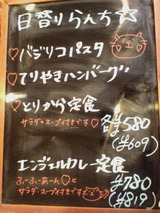 日替りらんち☆
♡バジリコパスタ
♡てりやきハンバーグ
♡とりから定食
サラダ・スープ付きです 各¥580
(¥609)
エンジェルカレー定食
ふぅーふぅーあーん♡と
サラダ・スープ付きです ¥780
(¥819)